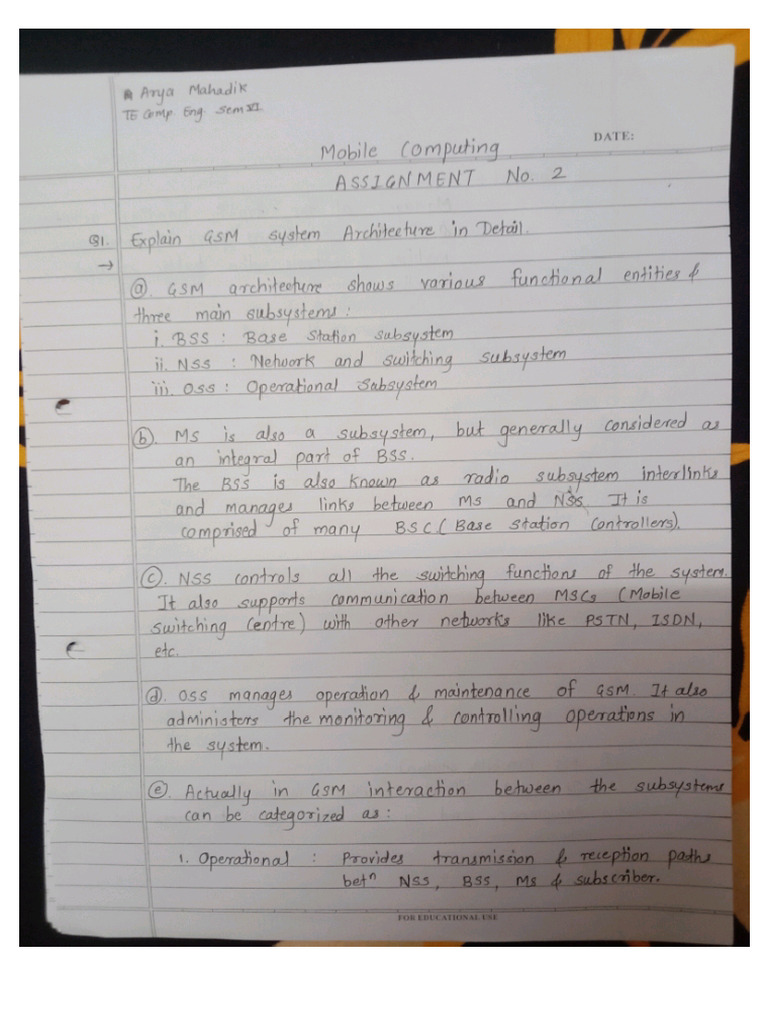 Arya Mahadik
TE Comp Eng. Sem VI
DATE:
Mobile Computing
ASSIGNMENT No. 2
Q1. Explain GSM system Architecture in Detail.
→
ⓐ. GSM architecture shows various functional entities &
three main subsystems:
i. BSS : Base Station Subsystem
ii. NSS : Network and switching subsystem
iii. OSS : Operational Subsystem
ⓑ. MS is also a subsystem, but generally considered as
an integral part of BSS.
The BSS is also known as radio subsystem interlinks
and manages links between MS and NSS. It is
comprised of many BSC (Base Station Controllers).
ⓒ. NSS controls all the switching functions of the system.
It also supports communication between MSCs (Mobile
switching Centre) with other networks like PSTN, ISDN,
etc.
ⓓ. OSS manages operation & maintenance of GSM. It also
administers the monitoring & controlling operations in
the system.
ⓔ. Actually in GSM interaction between the subsystems
can be categorized as:
1. Operational : Provides transmission & reception paths
betⁿ NSS, BSS, MS & subscriber.
FOR EDUCATIONAL USE